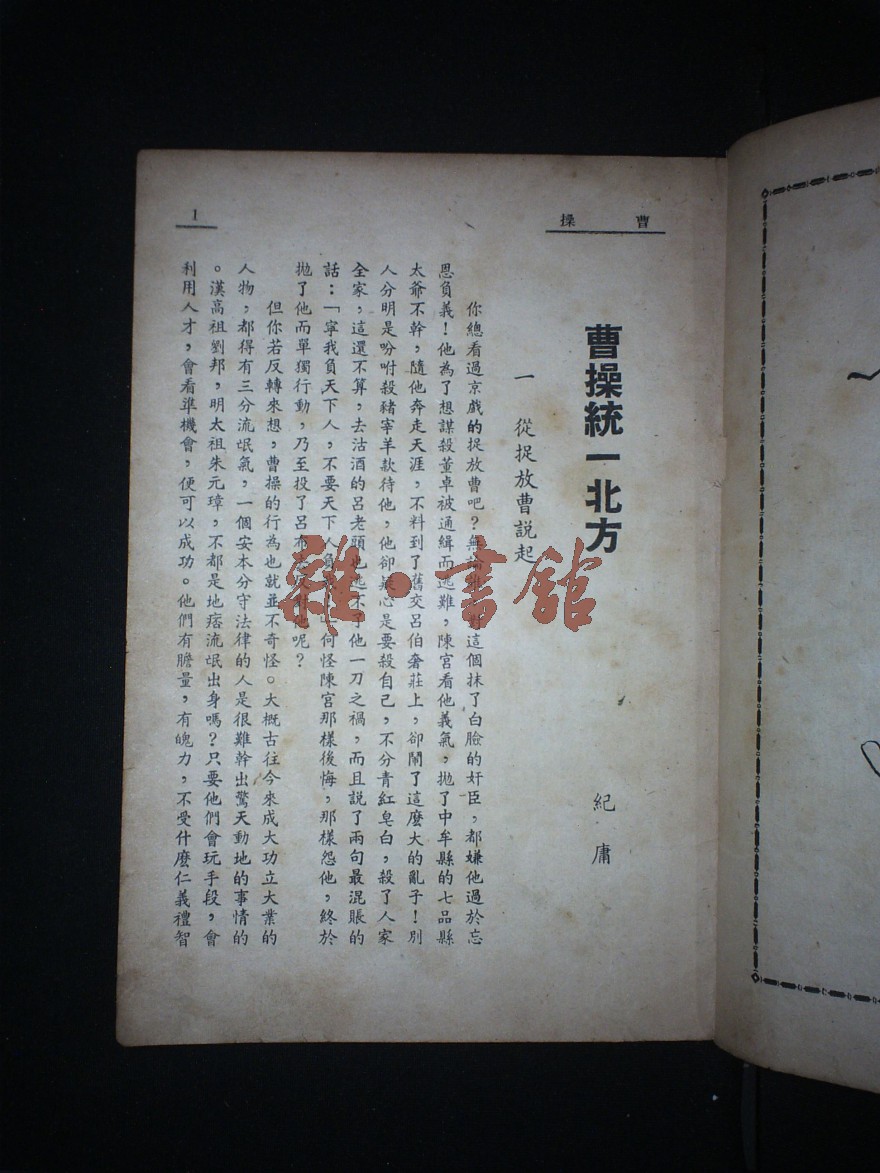 曹操
1
曹操統一北方
紀庸
一 從捉放曹説起
你總看過京戲的捉放曹吧?無論對這個抹了白臉的奸臣,都嫌他過於忘
恩負義!他為了想謀殺董卓被通緝而逃難,陳宮看他義氣,拋了中牟縣的七品縣
太爺不幹,隨他奔走天涯,不料到了舊交呂伯奢莊上,卻鬧了這麼大的亂子!別
人分明是吩咐殺豬宰羊款待他,他卻疑心是要殺自己,不分青紅皂白,殺了人家
全家,這還不算,去沽酒的呂老頭也逃不了他一刀之禍,而且説了兩句最混賬的
話:「寧我負天下人,不要天下人負何怪陳宮那樣後悔,那樣怨他,終於
拋了他而單獨行動,乃至投了呂布他呢?
但你若反轉來想,曹操的行為也就並不奇怪。大概古往今來成大功立大業的
人物,都得有三分流氓氣,一個安本分守法律的人是很難幹出驚天動地的事情的
。漢高祖劉邦,明太祖朱元璋,不都是地痞流氓出身嗎?只要他們會玩手段,會
利用人才,會看準機會,便可以成功。他們有膽量,有魄力,不受什麼仁義禮智
雜·書館